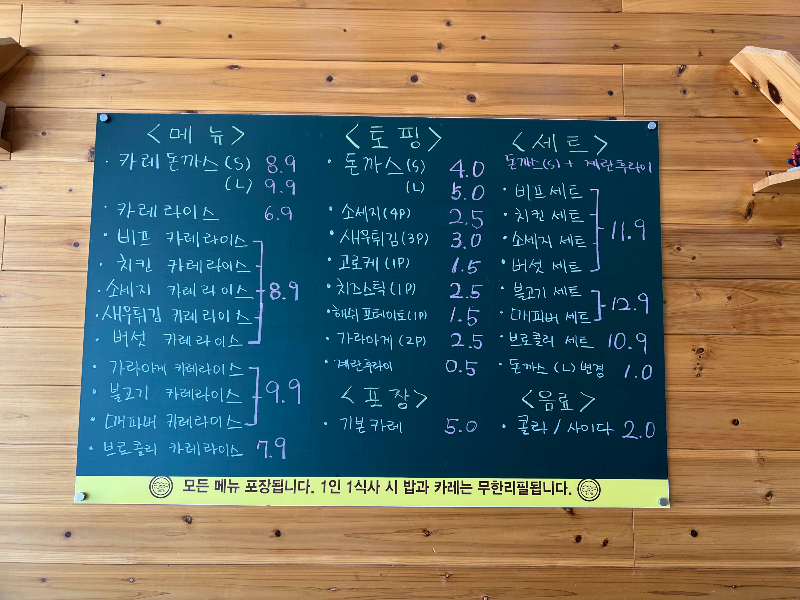 <메뉴>
· 카레돈까스(S) 8.9
(L) 9.9
· 카레라이스 6.9
· 비프 카레라이스
· 치킨 카레라이스
· 소세지 카레라이스 8.9
· 새우튀김 카레라이스
· 버섯 카레라이스
· 가라아게 카레라이스
· 불고기 카레라이스 9.9
· 대파버 카레라이스
· 브로콜리 카레라이스 7.9
<토핑>
· 돈까스(S) 4.0
(L) 5.0
· 소세지(4P) 2.5
· 새우튀김(3P) 3.0
· 고로케(1P) 1.5
· 치즈스틱(1P) 2.5
· 해쉬포테이토(1P) 1.5
· 가라아게(2P) 2.5
· 계란후라이 0.5
<포장>
· 기본카레 5.0
<세트>
돈까스(S) + 계란후라이
· 비프세트
· 치킨세트 11.9
· 소세지 세트
· 버섯 세트
· 불고기 세트 12.9
· 대파버 세트
· 브로콜리 세트 10.9
· 돈까스(L)변경 1.0
<음료>
· 콜라/사이다 2.0
모든 메뉴 포장됩니다. 1인 1식사 시 밥과 카레는 무한리필됩니다.